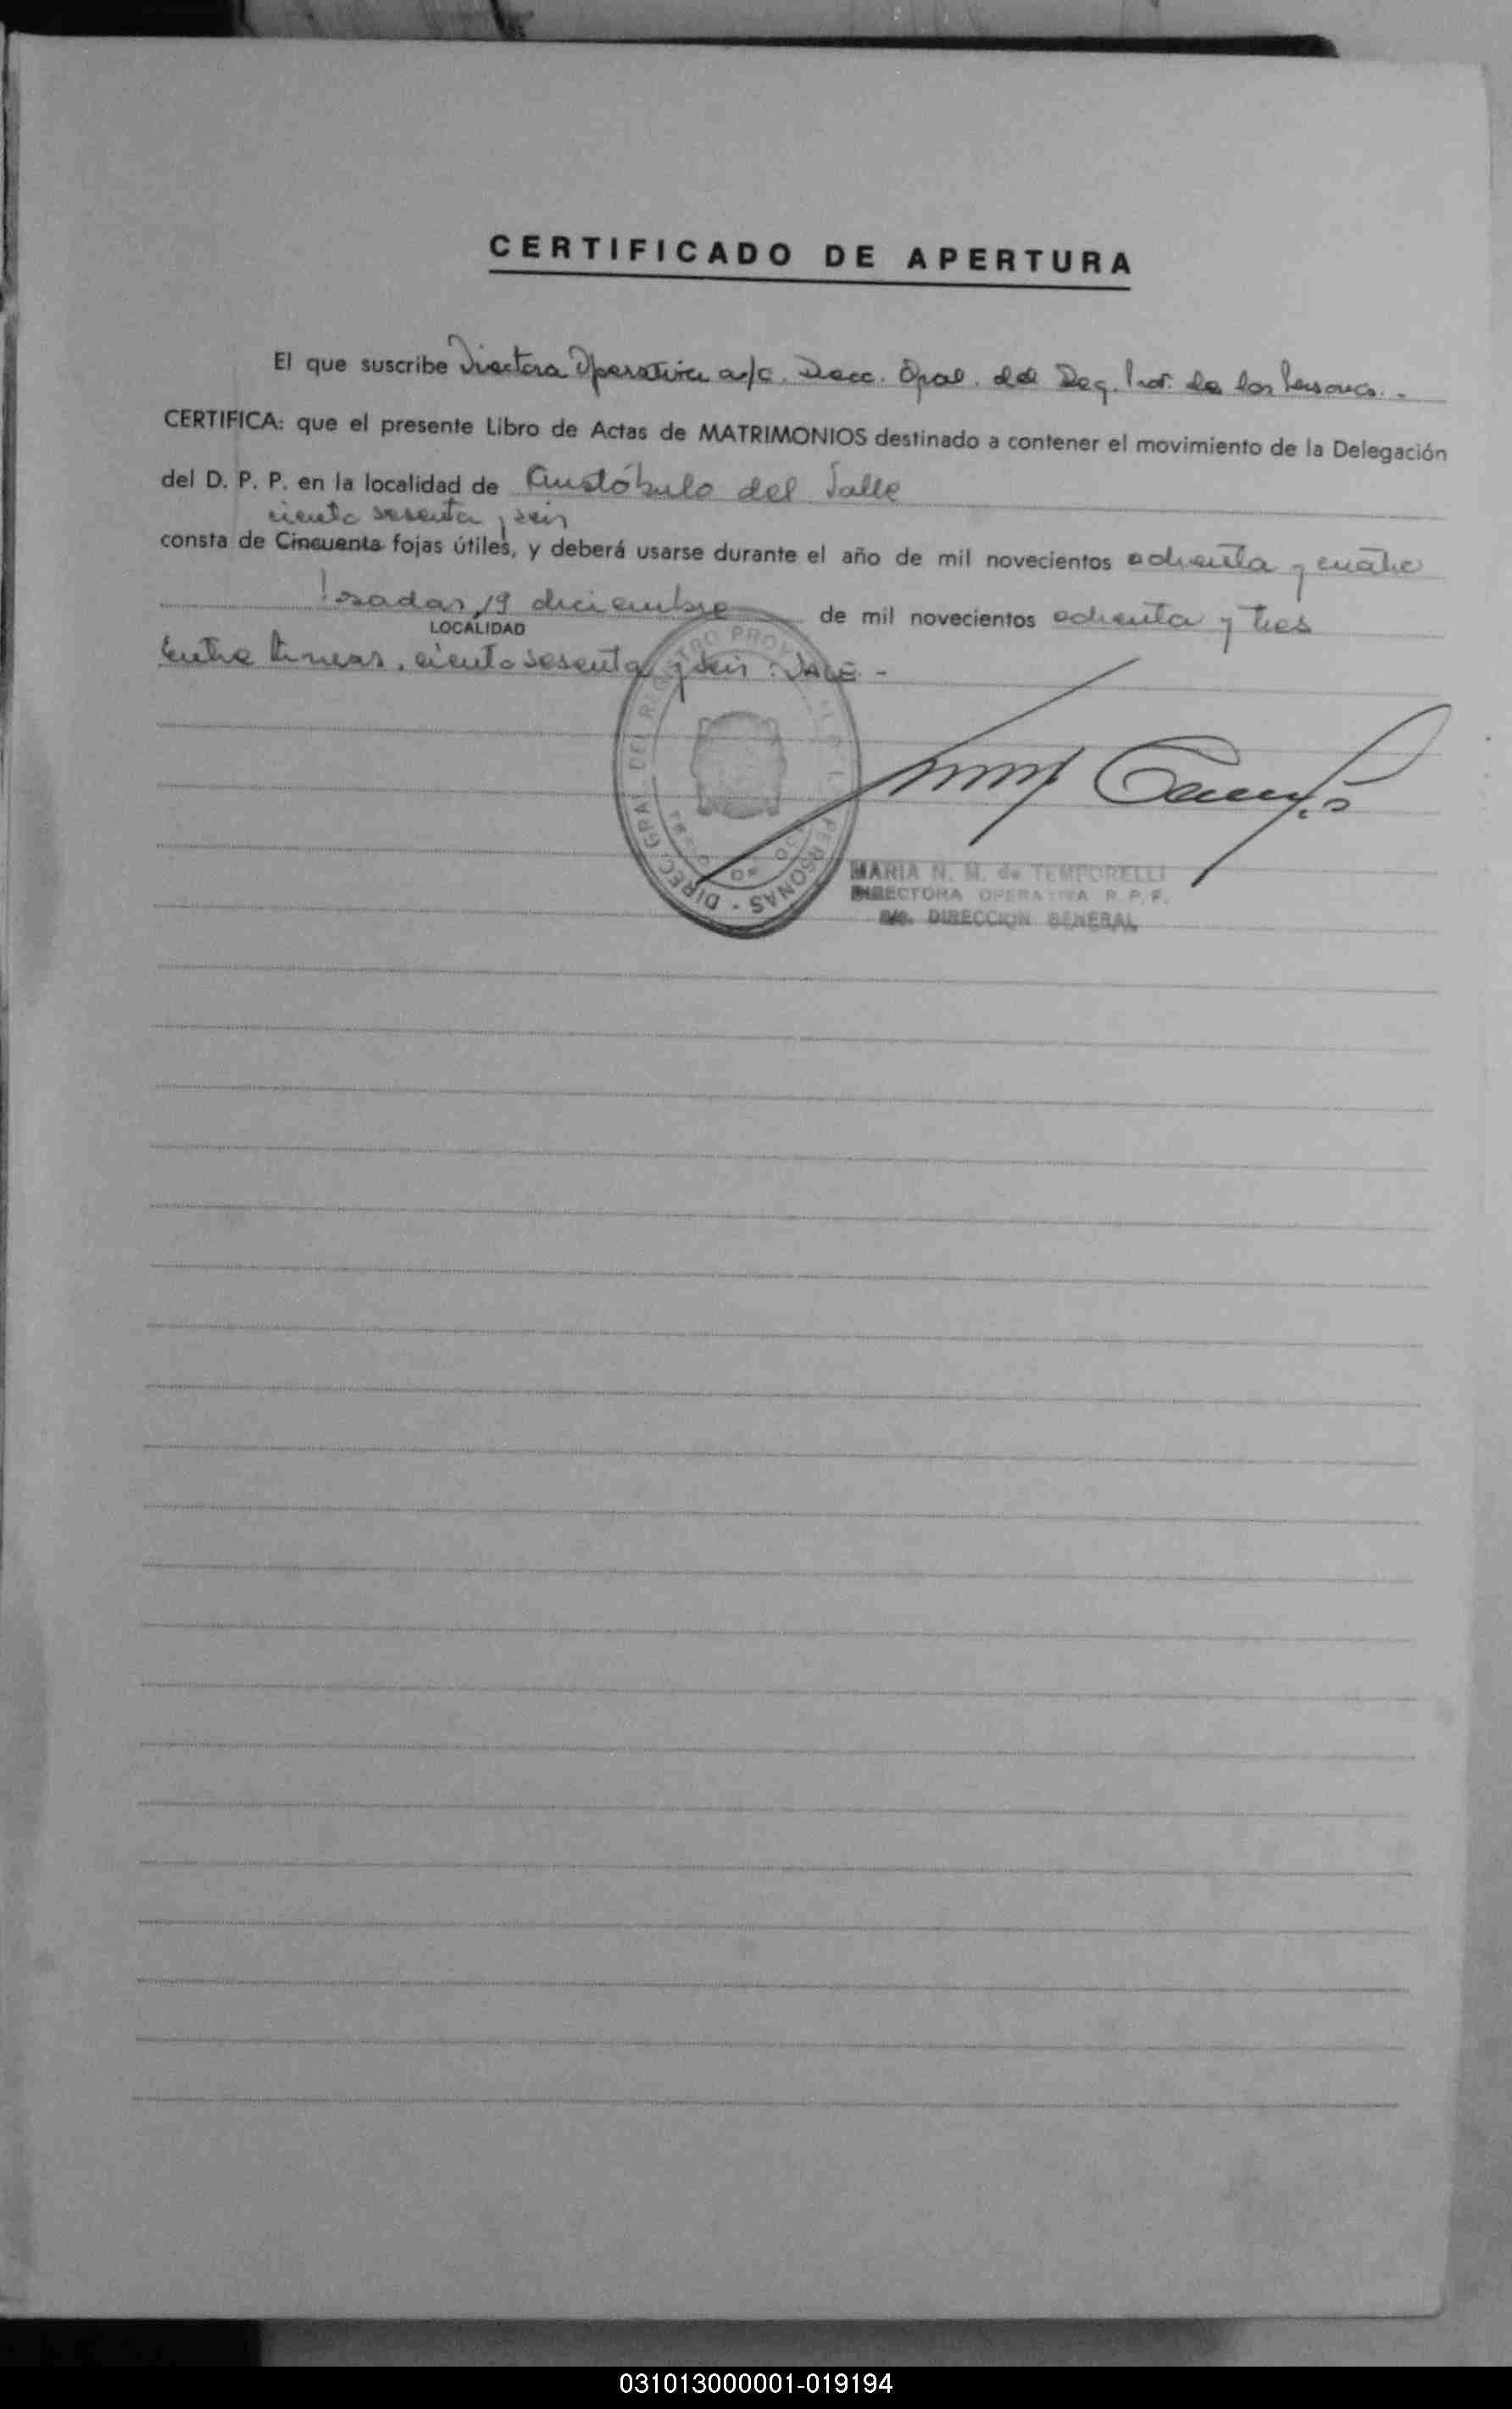 CERTIFICADO DE APERTURA
El que suscribe Directora Operativa a/c. Direcc. Gral. del Reg. Prov. de las Personas. -
CERTIFICA: que el presente Libro de Actas de MATRIMONIOS destinado a contener el movimiento de la Delegación
del D. P. P. en la localidad de Aristóbulo del Valle
ciento sesenta y seis
consta de Cincuenta fojas útiles, y deberá usarse durante el año de mil novecientos ochenta y cuatro
Posadas, 19 diciembre de mil novecientos ochenta y tres
LOCALIDAD
Entre líneas, ciento sesenta y seis: VALE. -
DIREC. GRAL. DEL REGISTRO PROV. PERSONAS -
MARIA N. M. de TEMPORELLI
DIRECTORA OPERATIVA R. P. P.
a/c. DIRECCION GENERAL
031013000001-019194